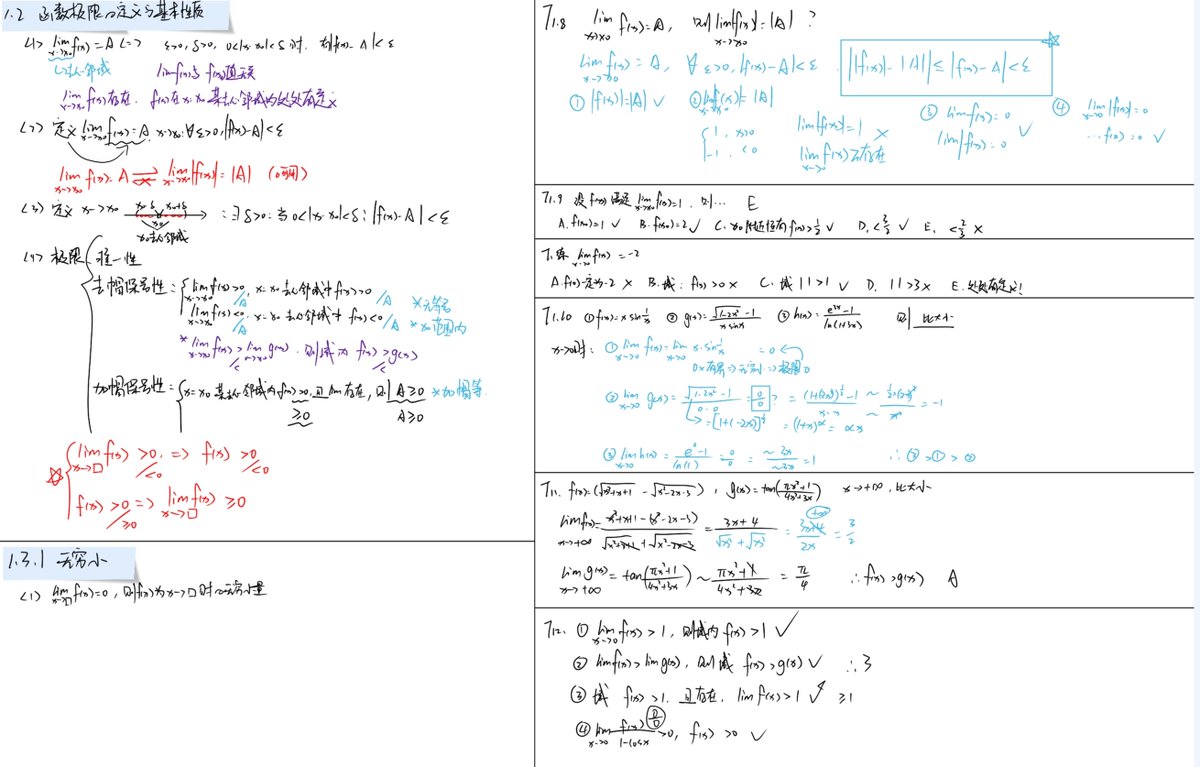 1.2 函数极限的定义与基本性质
(1) lim f(x)=A <=> ε>0, δ>0, 0<|x-x₀|<δ时, 有|f(x)-A|<ε
x→x₀
↳去心邻域 lim f(x)与f(x₀)值无关
lim f(x)存在, f(x)在x=x₀某去心邻域内处处有定义
x→x₀
(2) 定义 lim f(x)=A x→x₀: ∀ε>0, |f(x)-A|<ε
x→x₀
lim f(x)=A ⇌ lim |f(x)|=|A| (0可用)
x→x₀ x→x₀
(3) 定义 x→x₀ x₀-δ x₀+δ : ∃δ>0; 当0<|x-x₀|<δ; |f(x)-A|<ε
x₀
x₀去心邻域
(4) 极限 唯一性
去帽保号性: lim f(x)>0, x=x₀去心邻域中 f(x)>0 /A *无等号
x→x₀ /A
lim f(x)<0, x=x₀去心邻域中 f(x)<0 /A *x₀范围内
x→x₀ /A
*lim f(x)>lim g(x), 则域内 f(x)>g(x)
x→x₀ /< x→x₀ /<
加帽保号性: x=x₀某去心邻域内f(x)>0, 且lim存在, 则 A≥0 *加帽等
≥0 A≥0
☆ lim f(x) >0, => f(x) >0
x→□ /<0 /<0
f(x)>0 => lim f(x) ≥0
/≥0 x→□
1.3.1 无穷小
(1) lim f(x)=0, 则f(x)为x→□时的无穷小量
x→□
71.8 lim f(x)=A, 则lim|f(x)|=|A| ?
x→x₀ x→x₀
lim f(x)=A, ∀ε>0, |f(x)-A|<ε. ||f(x)|-|A||≤|f(x)-A|<ε ☆
x→x₀
① |f(x)|=|A| ✓ ②lim|f(x)|=|A| ③ lim f(x)=0 ④ lim|f(x)|=0
lim|f(x)|=0 ✓ x→x₀
…f(x)=0 ✓
{1, x>0 lim|f(x)|=1 ×
-1, <0 lim f(x)不存在
x→0
71.9 设f(x)满足lim f(x)=1, 则… E
x→x₀
A. f(x₀)=1 ✓ B. f(x₀)=2 ✓ C. x₀附近恒有f(x)>1/2 ✓ D. <3/2 ✓ E. <2/3 ×
7.练 lim f(x)=-2
x→x₀
A. f(x₀)一定为-2 × B. 域: f(x)>0 × C. 域 | |>1 ✓ D. | |>3 × E. 处处有定义!
71.10 ①f(x)=x sin 1/x ② g(x)=(√(1-2x²)-1)/(x sinx) ③ h(x)=(e^(3x)-1)/ln(1+3x) 则 比大小
x→0时: ① lim f(x)=lim x·sin 1/x =0
x→0 x→0 0×有界→无穷小→极限0
② lim g(x)=(√(1-2x²)-1)/(0·0) =0/0 => =((1+(-2x²))^(1/2)-1)/(x·x) ~ (1/2·(-2x²))/x² =-1
x→0 ↳=[1+(-2x)]^(1/2) =(1+x)^α = αx
③ lim h(x)=(e⁰-1)/ln(1) =0/0 =(~3x)/(~3x) =1 ∴ ③>①>②
x→0
711. f(x)=(√(x²+x+1) -√(x²-2x-3)), g(x)=tan((πx²+1)/(4x²+3x)) x→+∞, 比大小
lim f(x)=(x²+x+1-(x²-2x-3))/(√(x²+x+1)+√(x²-2x-3)) =(3x+4)/(√x²+√x²) =(3x+4)/2x =3/2
x→+∞ +∞
lim g(x)=tan((πx²+1)/(4x²+3x)) ~ (πx²+1)/(4x²+3x) =π/4 ∴f(x)>g(x) A
x→+∞
712. ① lim f(x)>1, 则域内f(x)>1 ✓
x→0
② lim f(x)>lim g(x), 则域 f(x)>g(x) ✓ ∴3
③ 域 f(x)>1, 且存在, lim f(x)>1 ✓ ≥1
④ lim f(x)/(1-cosx) 0/0 >0, f(x) >0 ✓
x→0